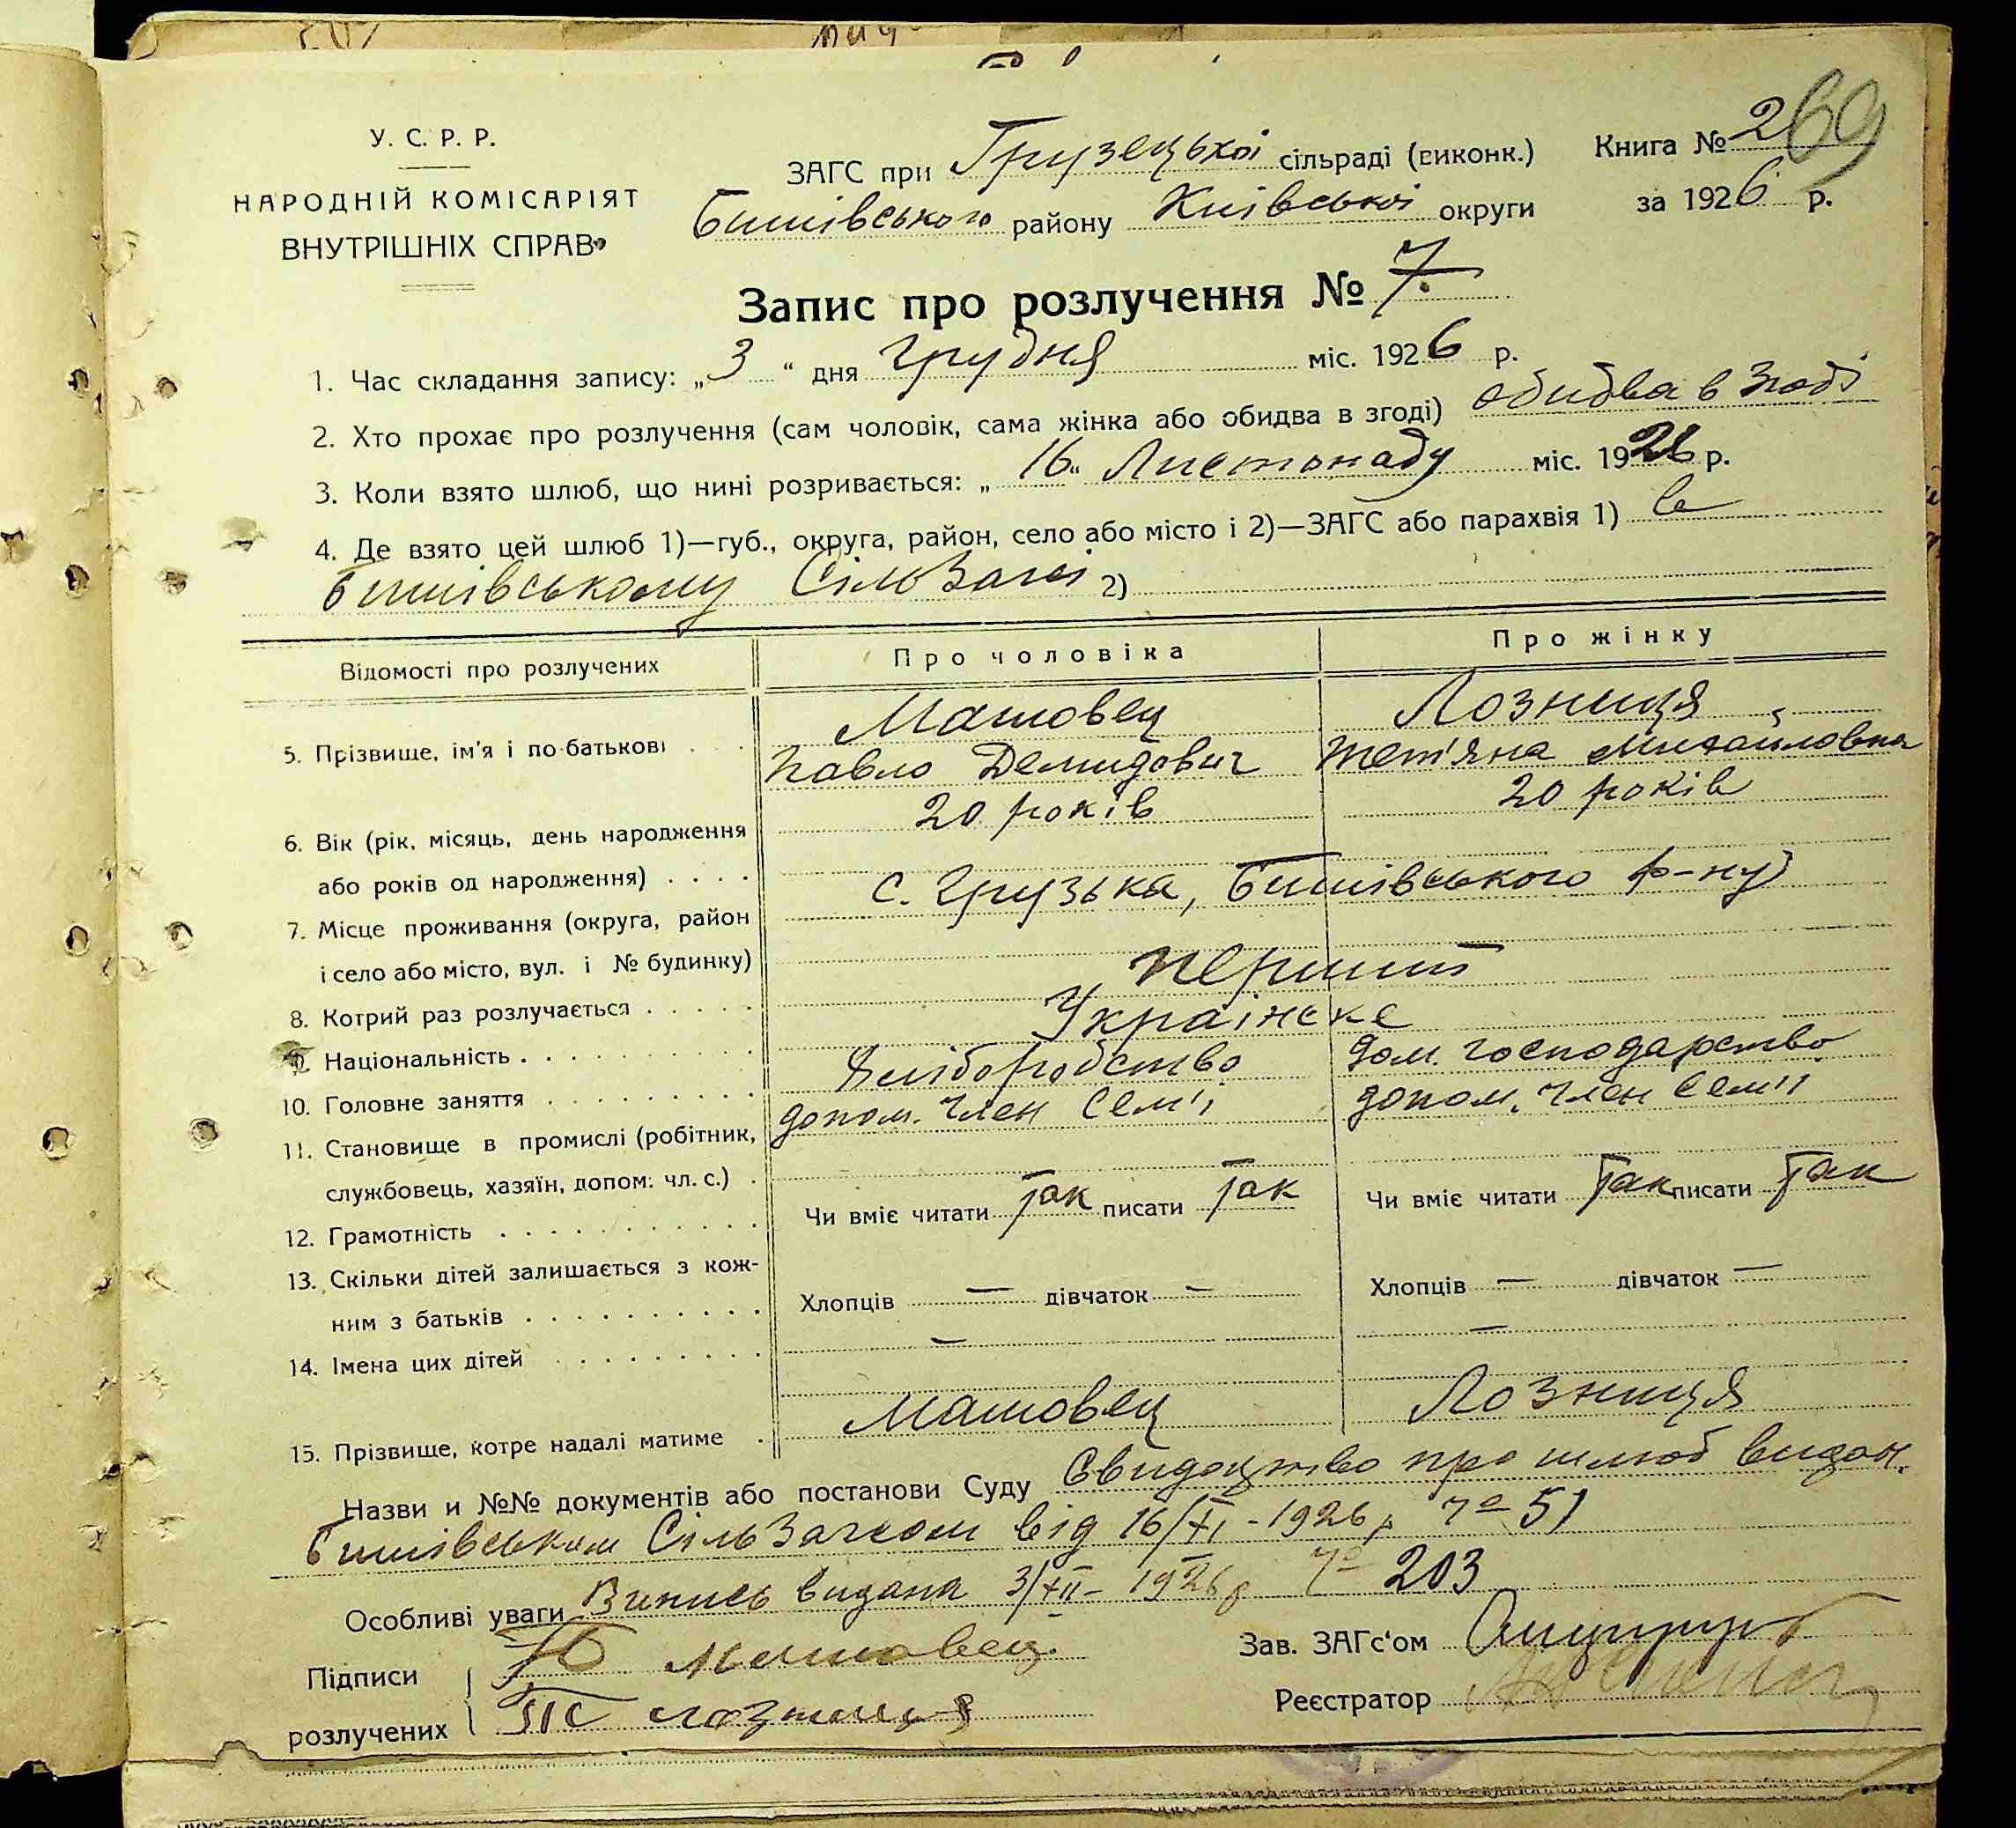 У. С. Р. Р.
НАРОДНІЙ КОМІСАРІЯТ
ВНУТРІШНІХ СПРАВ
ЗАГС при Грузецькоі сільраді (виконк.)
Бишівського району Київськоі округи
Книга № 2
69
за 1926 р.
Запис про розлучення № 7.
1. Час складання запису: „3“ дня Грудня міс. 1926 р.
2. Хто прохає про розлучення (сам чоловік, сама жінка або обидва в згоді) обидва в згоді
3. Коли взято шлюб, що нині розривається: „16“ Листопаду міс. 1926 р.
4. Де взято цей шлюб 1)—губ., округа, район, село або місто і 2)—ЗАГС або парахвія 1) в
Бишівському СільЗагсі 2)
Відомості про розлучених Про чоловіка Про жінку
5. Прізвище, ім'я і по-батькові
Машовец
Павло Демидович
Лозниця
Тет'яна Михайловна
6. Вік (рік, місяць, день народження
або років од народження)
20 років
20 років
7. Місце проживання (округа, район
і село або місто, вул. і № будинку)
с. Грузька, Бишівського р-ну
8. Котрий раз розлучається
перший
9. Національність
Українське
10. Головне заняття
Хліборобство
дом. господарство
11. Становище в промислі (робітник,
службовець, хазяїн, допом. чл. с.)
допом. член сем'ї
допом. член сем'ї
12. Грамотність
Чи вміє читати так писати так
Чи вміє читати так писати так
13. Скільки дітей залишається з кож-
ним з батьків
Хлопців — дівчаток —
Хлопців — дівчаток —
14. Імена цих дітей
—
—
15. Прізвище, котре надалі матиме
Машовец
Лозниця
Назви и №№ документів або постанови Суду Свидоцтво про шлюб видан.
Бишівським СільЗагсом від 16/XI-1926 р № 51
Особливі уваги Випись видана 3/XII-1926 р № 203
Підписи
розлучених
Машовец.
Лозниця
Зав. ЗАГс'ом
Реєстратор